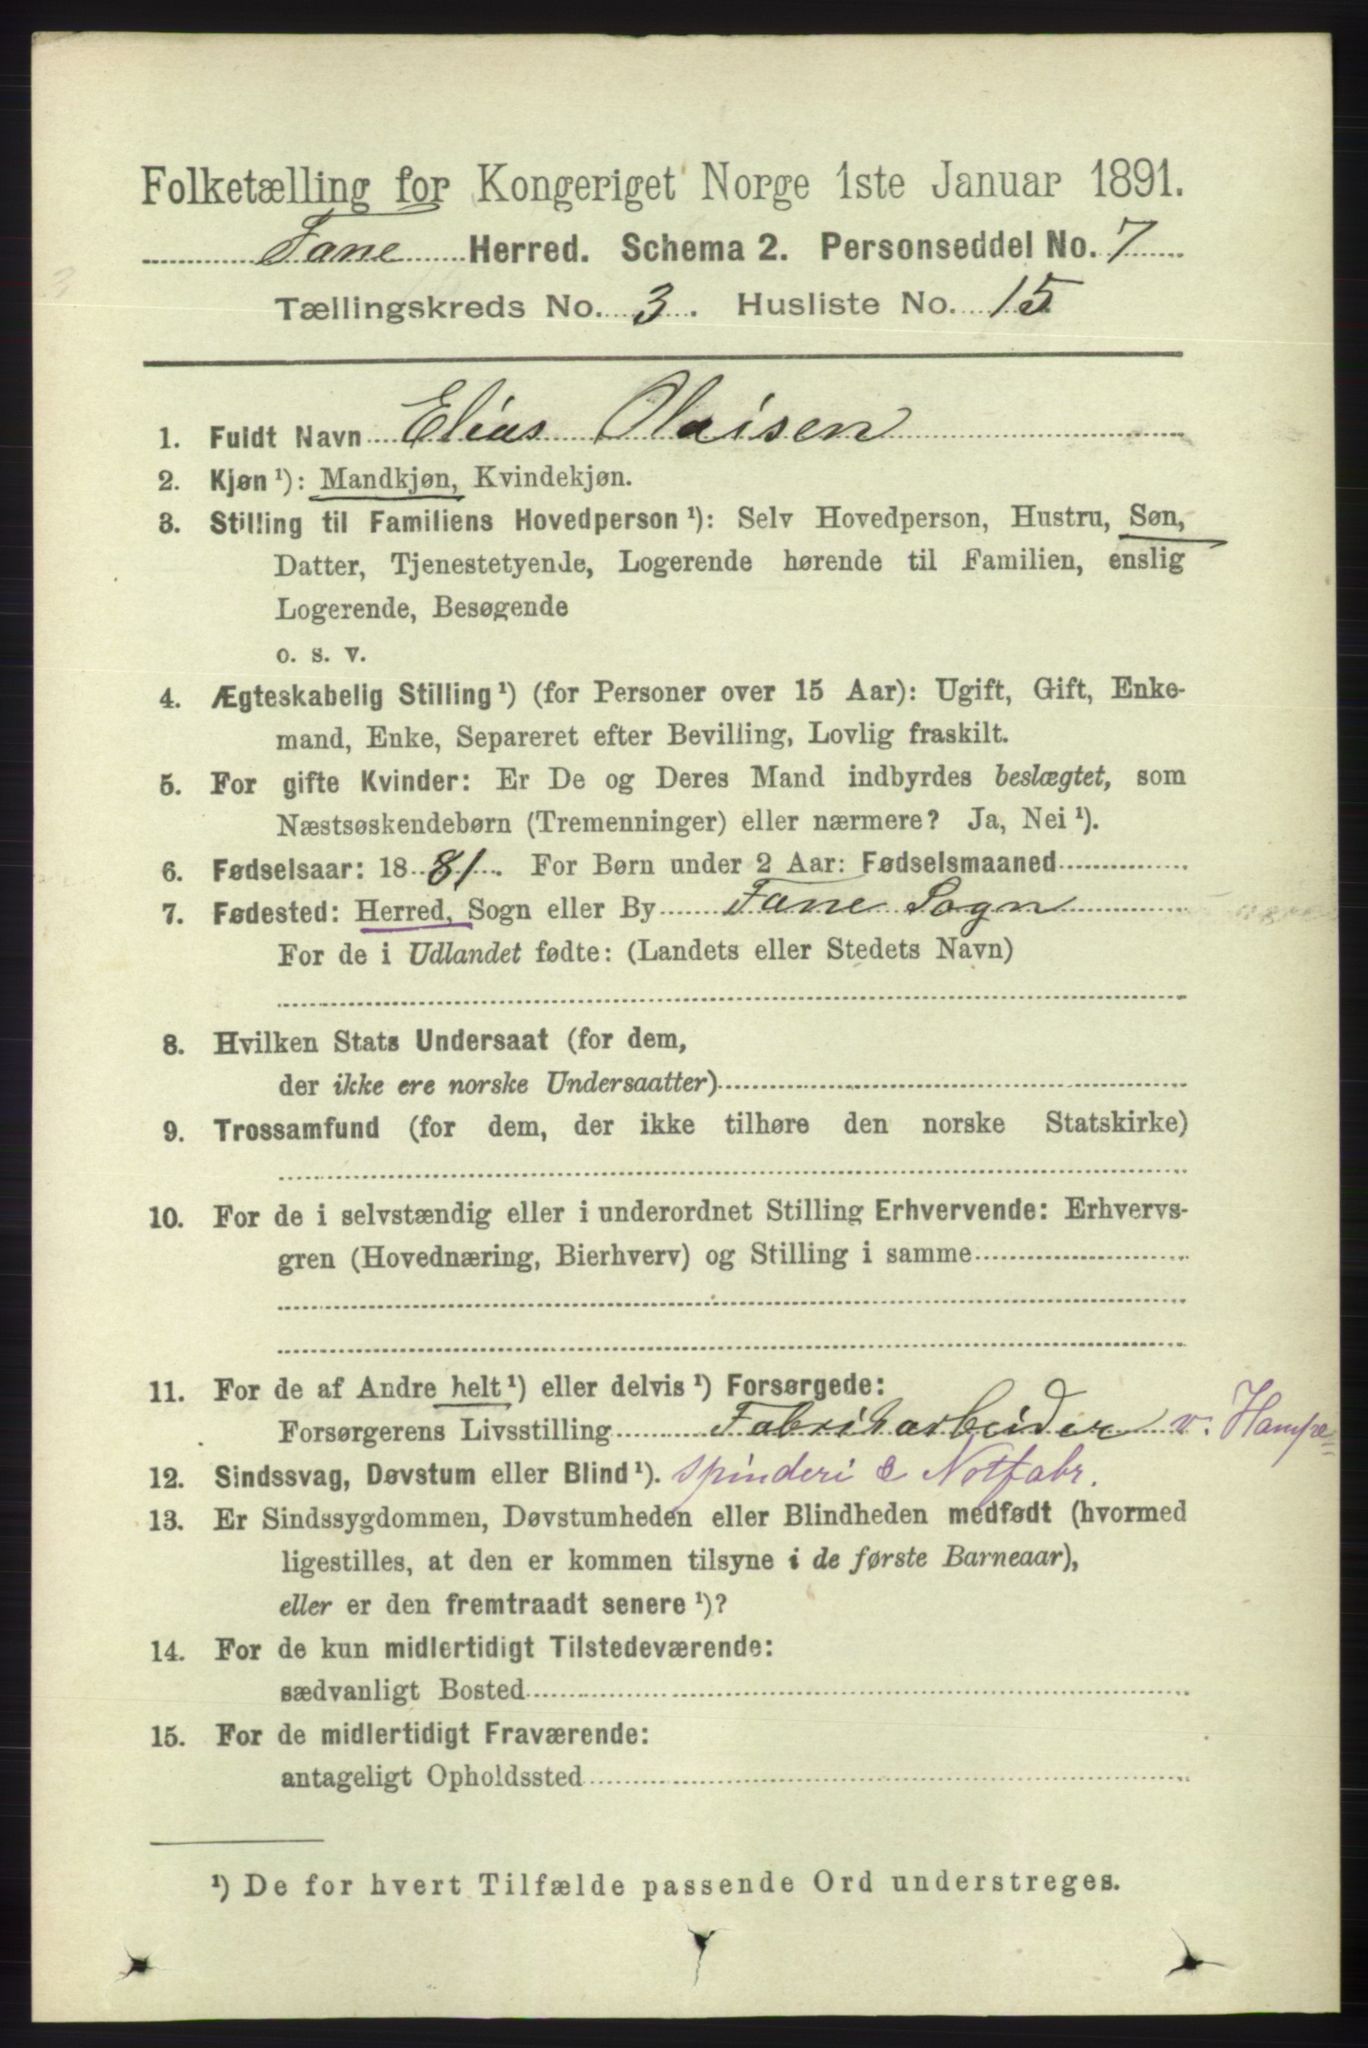 Folketælling for Kongeriget Norge 1ste Januar 1891.
Fane Herred. Schema 2. Personseddel No. 7
Tællingskreds No. 3. Husliste No. 15
1. Fuldt Navn Elias Olaisen
2. Kjøn ¹): Mandkjøn, Kvindekjøn.
3. Stilling til Familiens Hovedperson ¹): Selv Hovedperson, Hustru, Søn,
Datter, Tjenestetyende, Logerende hørende til Familien, enslig
Logerende, Besøgende
o. s. v.
4. Ægteskabelig Stilling ¹) (for Personer over 15 Aar): Ugift, Gift, Enke-
mand, Enke, Separeret efter Bevilling, Lovlig fraskilt.
5. For gifte Kvinder: Er De og Deres Mand indbyrdes beslægtet, som
Næstsøskendebørn (Tremenninger) eller nærmere? Ja, Nei ¹).
6. Fødselsaar: 1881. For Børn under 2 Aar: Fødselsmaaned
7. Fødested: Herred, Sogn eller By Fane Sogn
For de i Udlandet fødte: (Landets eller Stedets Navn)
8. Hvilken Stats Undersaat (for dem,
der ikke ere norske Undersaatter)
9. Trossamfund (for dem, der ikke tilhøre den norske Statskirke)
10. For de i selvstændig eller i underordnet Stilling Erhvervende: Erhvervs-
gren (Hovednæring, Bierhverv) og Stilling i samme
11. For de af Andre helt ¹) eller delvis ¹) Forsørgede:
Forsørgerens Livsstilling Fabrikarbeider v. Hampe=
12. Sindssvag, Døvstum eller Blind ¹). spinderi & Notfabr.
13. Er Sindssygdommen, Døvstumheden eller Blindheden medfødt (hvormed
ligestilles, at den er kommen tilsyne i de første Barneaar),
eller er den fremtraadt senere ¹)?
14. For de kun midlertidigt Tilstedeværende:
sædvanligt Bosted
15. For de midlertidigt Fraværende:
antageligt Opholdssted
¹) De for hvert Tilfælde passende Ord understreges.